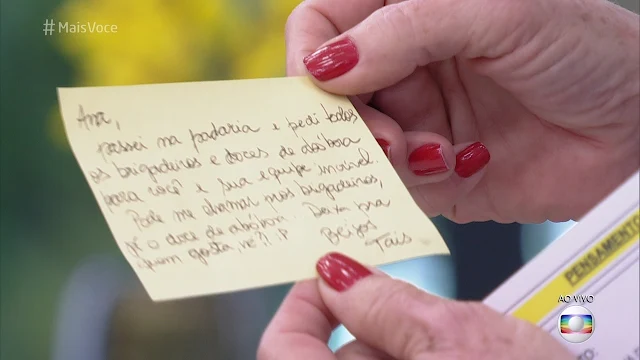 #MaisVoce
Ana,
passei na padaria e pedi todos
os brigadeiros e doces de abóbora
para você e sua equipe incrível.
Pode me chamar nos brigadeiros,
já o doce de abóbora. Deixa pra
quem gosta, né?! :P
Beijos
Tais
PENSAMENTO
AO VIVO